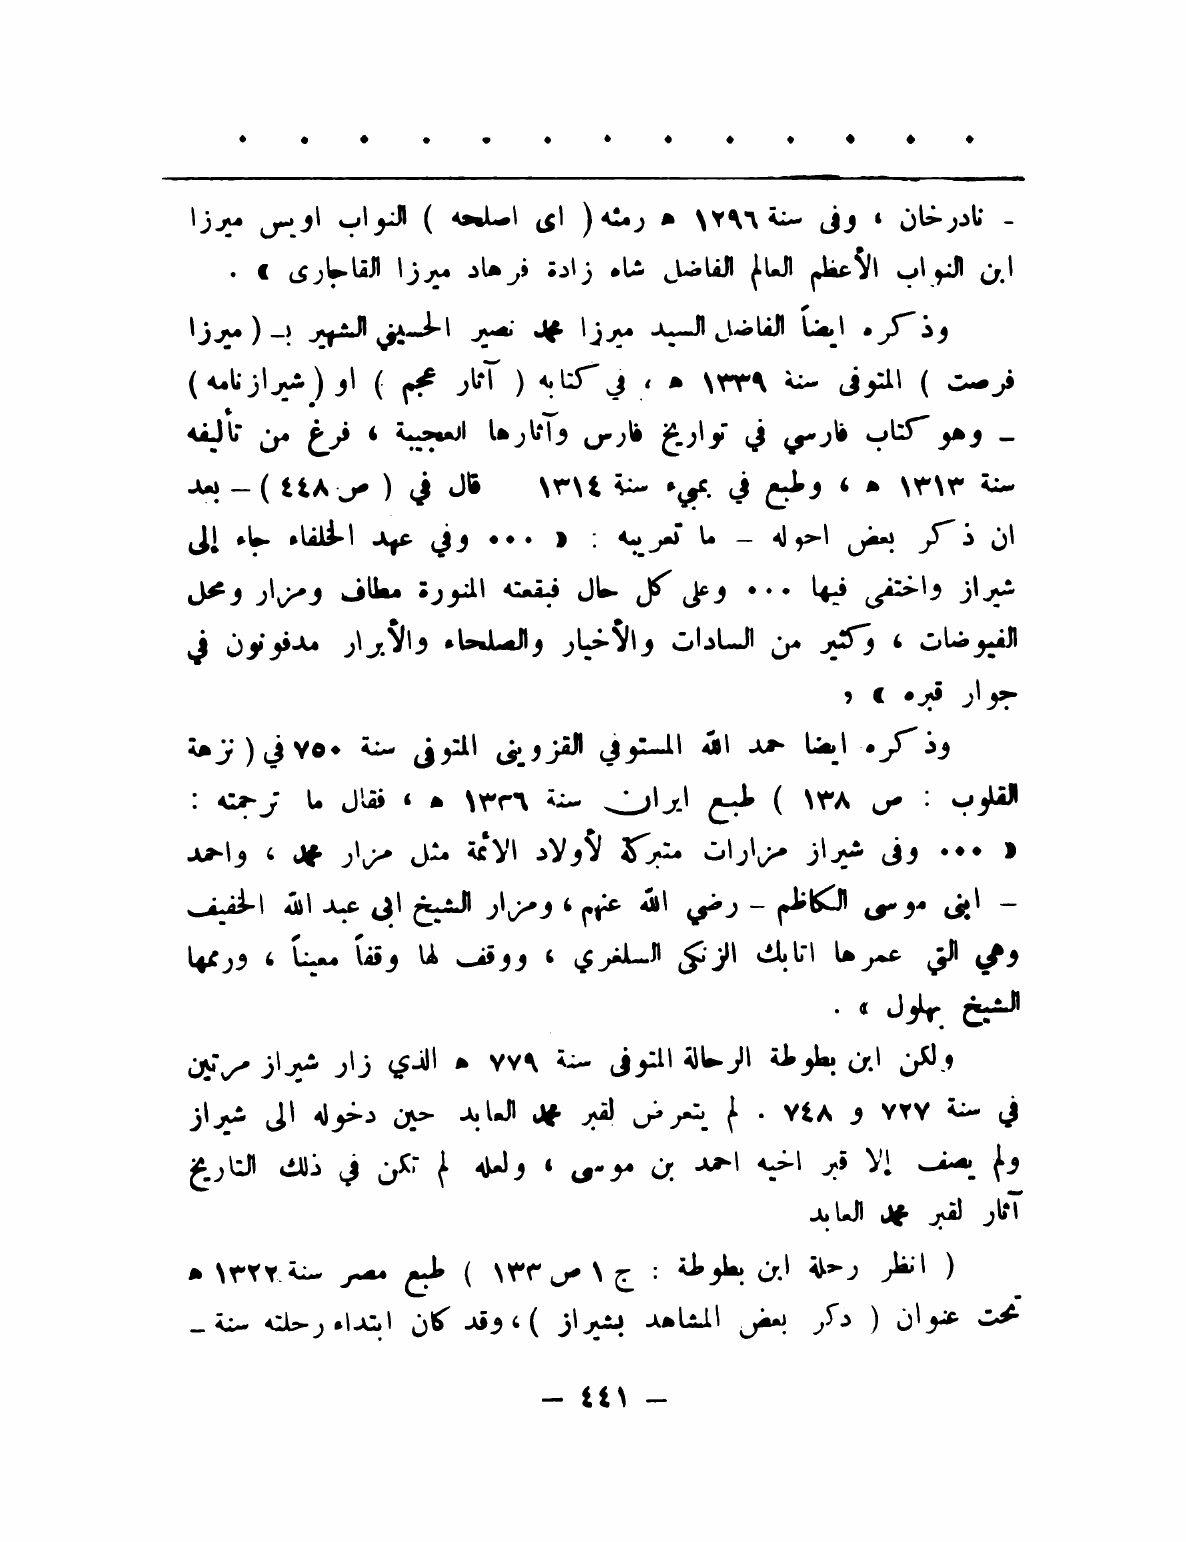 . . . . . . . . . . . . .
- نادرخان ، وفى سنة ١٢٩٦ ه رمثه ( اى اصلحه ) النواب اويس ميرزا
ابن النواب الأعظم العالم الفاضل شاه زادة فرهاد ميرزا القاجارى » .
وذكره ايضاً الفاضل السيد ميرزا محمد نصير الحسيني الشهير بـ ( ميرزا
فرصت ) المتوفى سنة ١٣٣٩ ه ، في كتابه ( آثار عجم ) او ( شيراز نامه )
- وهو كتاب فارسي في تواريخ فارس وآثارها العجيبة ، فرغ من تأليفه
سنة ١٣١٣ ه ، وطبع في بمبيء سنة ١٣١٤ قال في ( ص ٤٤٨ ) - بعد
ان ذكر بعض احوله - ما تعريبه : « ... وفي عهد الخلفاء جاء إلى
شيراز واختفى فيها ... وعلى كل حال فبقعته المنورة مطاف ومزار ومحل
الفيوضات ، وكثير من السادات والأخيار والصلحاء والأبرار مدفونون في
جوار قبره » ،
وذكره ايضا حمد الله المستوفي القزويني المتوفى سنة ٧٥٠ في ( نزهة
القلوب : ص ١٣٨ ) طبع ايران سنة ١٣٣٦ ه ، فقال ما ترجمته :
« ... وفى شيراز مزارات متبركة لأولاد الأئمة مثل مزار محمد ، واحمد
- ابنى موسى الكاظم - رضي الله عنهم ، ومزار الشيخ ابي عبد الله الخفيف
وهي التي عمرها اتابك الزنكى السلغري ، ووقف لها وقفاً معيناً ، ورممها
الشيخ بهلول » .
ولكن ابن بطوطة الرحالة المتوفى سنة ٧٧٩ ه الذي زار شيراز مرتين
في سنة ٧٢٧ و ٧٤٨ . لم يتعرض لقبر محمد العابد حين دخوله الى شيراز
ولم يصف إلا قبر اخيه احمد بن موسى ، ولعله لم تكن في ذلك التاريخ
آثار لقبر محمد العابد
( انظر رحلة ابن بطوطة : ج ١ ص ١٣٣ ) طبع مصر سنة ١٣٢٢ ه
تحت عنوان ( ذكر بعض المشاهد بشيراز ) ، وقد كان ابتداء رحلته سنة -
- ٤٤١ -